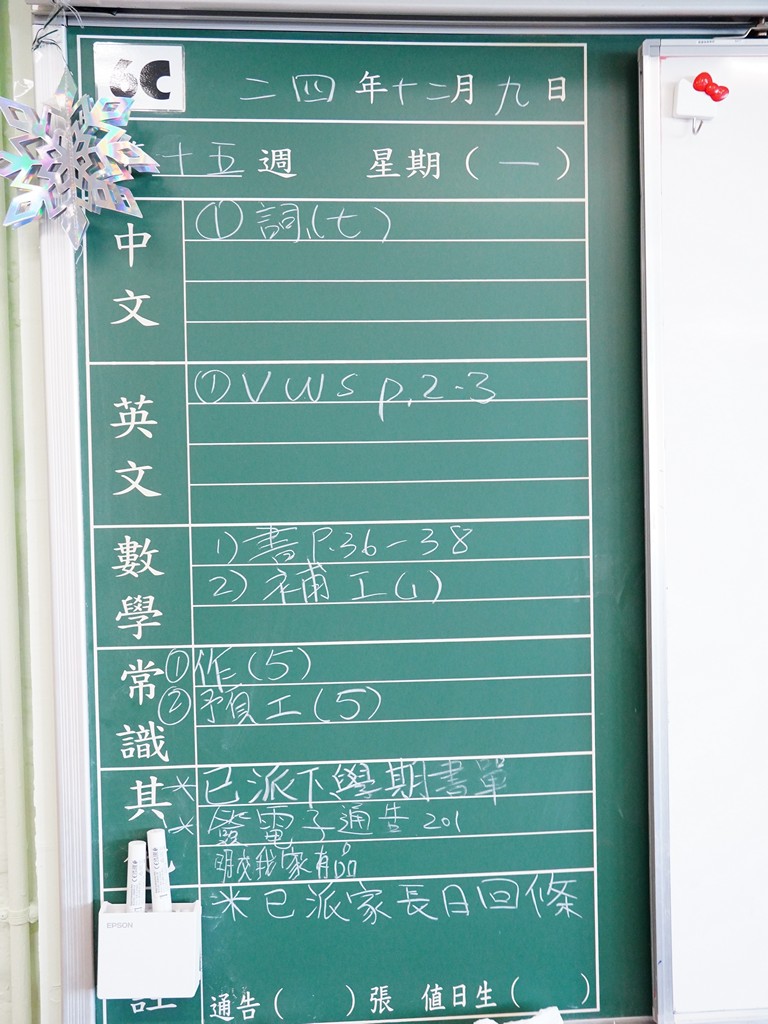 6C
二四年十二月九日
十五週 星期（一）
中文
① 詞(七)
英文
① VWS p.2-3
數學
1) 書P.36-38
2) 補工(1)
常識
① 作(5)
② 預工(5)
其
* 已派下學期書單
* 簽電子通告201
明交我家有品
* 已派家長日回條
EPSON
註
通告（　　）張 值日生（　　）